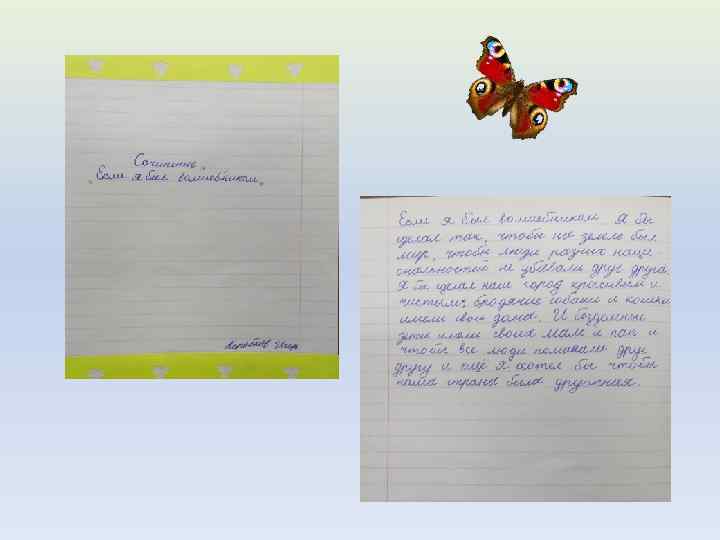 Сочинение.
„Если я был волшебником„
Игорь
Если я был волшебником Я бы
сделал так, чтобы на земле был
мир, чтобы люди разных наци
ональностей не убивали друг друга.
Я бы сделал наш город красивым и
чистым; бродячие собаки и кошки
имели свои дома. И бездомные
дети имели своих мам и пап и
чтобы все люди помогали друг
другу и ещё я хотел бы чтобы
наша страна была дружная.